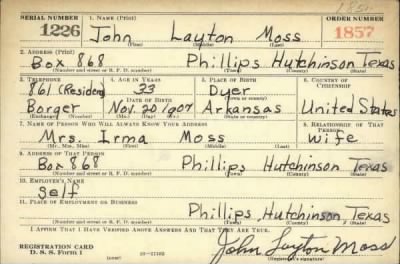 SERIAL NUMBER 1. NAME (Print) ORDER NUMBER
1226 John Layton Moss 1857
(First) (Middle) (Last)
2. ADDRESS (Print)
Box 868 Phillips Hutchinson Texas
(Number and street or R. F. D. number) (Town) (County) (State)
3. TELEPHONE 4. AGE IN YEARS 5. PLACE OF BIRTH 6. COUNTRY OF CITIZENSHIP
861 (Residen) 33 Dyer
DATE OF BIRTH (Town or county)
Borger Nov. 20 1907 Arkansas United States
(Exchange) (Number) (Mo.) (Day) (Yr.) (State or country)
7. NAME OF PERSON WHO WILL ALWAYS KNOW YOUR ADDRESS 8. RELATIONSHIP OF THAT PERSON
Mrs. Irma Moss wife
(Mr., Mrs., Miss) (First) (Middle) (Last)
9. ADDRESS OF THAT PERSON
Box 868 Phillips Hutchinson Texas
(Number and street or R. F. D. number) (Town) (County) (State)
10. EMPLOYER'S NAME
Self
11. PLACE OF EMPLOYMENT OR BUSINESS
Phillips, Hutchinson, Texas
(Number and street or R. F. D. number) (Town) (County) (State)
I AFFIRM THAT I HAVE VERIFIED ABOVE ANSWERS AND THAT THEY ARE TRUE.
REGISTRATION CARD
D. S. S. FORM 1
(over)
John Layton Moss